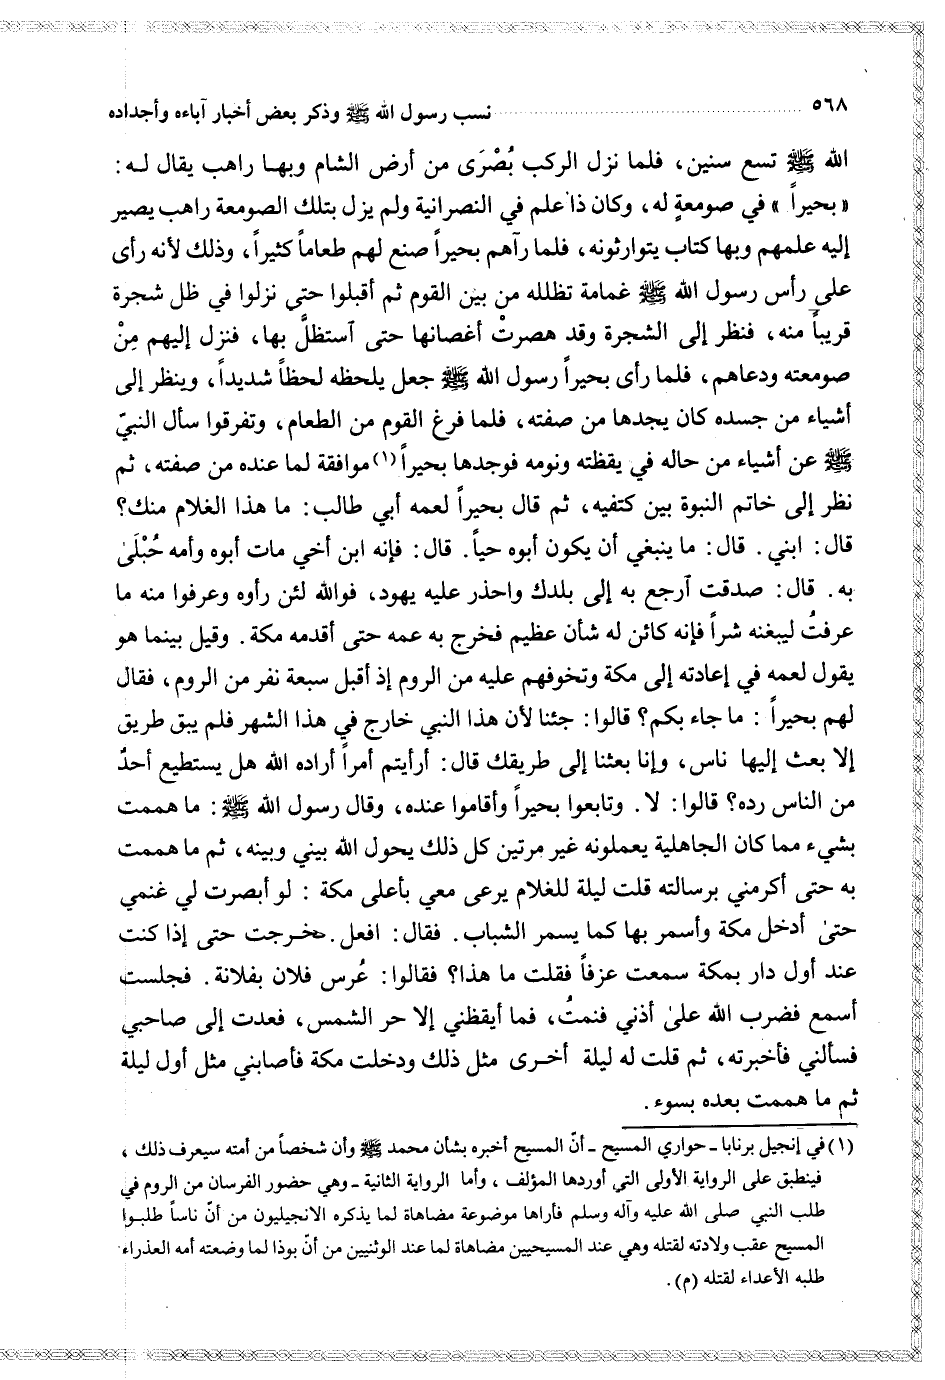 ٥٦٨ ........ نسب رسول الله ﷺ وذكر بعض أخبار آباءه وأجداده
الله ﷺ تسع سنين، فلما نزل الركب بُصْرَى من أرض الشام وبها راهب يقال له:
«بحيراً» في صومعةٍ له، وكان ذا علم في النصرانية ولم يزل بتلك الصومعة راهب يصير
إليه علمهم وبها كتاب يتوارثونه، فلما رآهم بحيراً صنع لهم طعاماً كثيراً، وذلك لأنه رأى
على رأس رسول الله ﷺ غمامة تظلله من بين القوم ثم أقبلوا حتى نزلوا في ظل شجرة
قريباً منه، فنظر إلى الشجرة وقد هصرتْ أغصانها حتى آستظلَّ بها، فنزل إليهم مِنْ
صومعته ودعاهم، فلما رأى بحيراً رسول الله ﷺ جعل يلحظه لحظاً شديداً، وينظر إلى
أشياء من جسده كان يجدها من صفته، فلما فرغ القوم من الطعام، وتفرقوا سأل النبيّ
ﷺ عن أشياء من حاله في يقظته ونومه فوجدها بحيراً(١) موافقة لما عنده من صفته، ثم
نظر إلى خاتم النبوة بين كتفيه، ثم قال بحيراً لعمه أبي طالب: ما هذا الغلام منك؟
قال: ابني. قال: ما ينبغي أن يكون أبوه حياً. قال: فإنه ابن أخي مات أبوه وأمه حُبْلَىٰ
به. قال: صدقت آرجع به إلى بلدك واحذر عليه يهود، فوالله لئن رأوه وعرفوا منه ما
عرفتُ ليبغنه شراً فإنه كائن له شأن عظيم فخرج به عمه حتى أقدمه مكة. وقيل بينما هو
يقول لعمه في إعادته إلى مكة وتخوفهم عليه من الروم إذ أقبل سبعة نفر من الروم، فقال
لهم بحيراً: ما جاء بكم؟ قالوا: جئنا لأن هذا النبي خارج في هذا الشهر فلم يبق طريق
إلا بعث إليها ناس، وإنا بعثنا إلى طريقك قال: أرأيتم أمراً أراده الله هل يستطيع أحدٌ
من الناس رده؟ قالوا: لا. وتابعوا بحيراً وأقاموا عنده، وقال رسول الله ﷺ: ما هممت
بشيء مما كان الجاهلية يعملونه غير مرتين كل ذلك يحول الله بيني وبينه، ثم ما هممت
به حتى أكرمني برسالته قلت ليلة للغلام يرعى معي بأعلى مكة: لو أبصرت لي غنمي
حتىٰ أدخل مكة وأسمر بها كما يسمر الشباب. فقال: افعل. فخرجت حتى إذا كنت
عند أول دار بمكة سمعت عزفاً فقلت ما هذا؟ فقالوا: عُرس فلان بفلانة. فجلست
أسمع فضرب الله علىٰ أذني فنمتُ، فما أيقظني إلا حر الشمس، فعدت إلى صاحبي
فسألني فأخبرته، ثم قلت له ليلة أخرى مثل ذلك ودخلت مكة فأصابني مثل أول ليلة
ثم ما هممت بعده بسوء.
(١) في إنجيل برنابا - حواري المسيح - أنّ المسيح أخبره بشأن محمد ﷺ وأن شخصاً من أمته سيعرف ذلك،
فينطبق على الرواية الأولى التي أوردها المؤلف، وأما الرواية الثانية - وهي حضور الفرسان من الروم في
طلب النبي صلى الله عليه وآله وسلم فأراها موضوعة مضاهاة لما يذكره الانجيليون من أنّ ناساً طلبوا
المسيح عقب ولادته لقتله وهي عند المسيحيين مضاهاة لما عند الوثنيين من أنّ بوذا لما وضعته أمه العذراء
طلبه الأعداء لقتله (م).